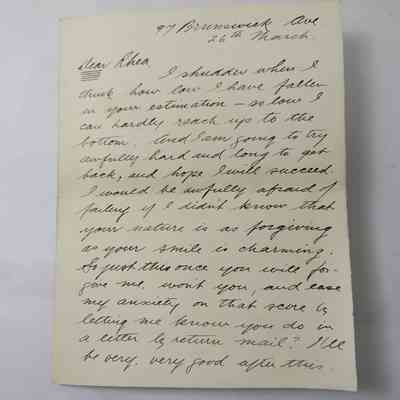 97 Brunswick Ave
26th March.
Dear Rhea,
I shudder when I
think how low I have fallen
in your estimation – so low I
can hardly reach up to the
bottom. And I am going to try
awfully hard and long to get
back, and hope I will succeed.
I would be awfully afraid of
failing if I didn't know that
your nature is as forgiving
as your smile is charming.
So just this once you will for-
give me, wont you, and ease
my anxiety on that score by
letting me know you do in
a letter by return mail? I'll
be very, very good after this.